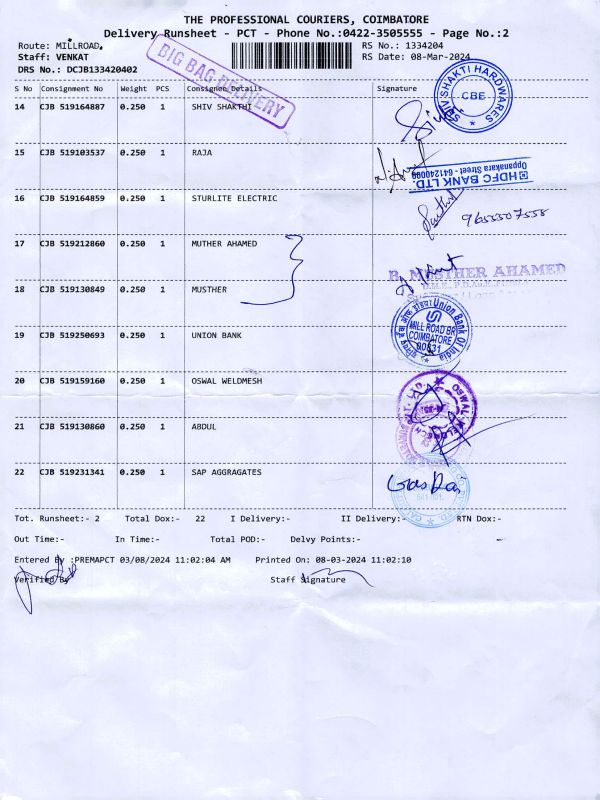 THE PROFESSIONAL COURIERS, COIMBATORE
Delivery Runsheet - PCT - Phone No.:0422-3505555 - Page No.:2
Route: MILLROAD, RS No.: 1334204
Staff: VENKAT RS Date: 08-Mar-2024
DRS No.: DCJB133420402
BIG BAG DELIVERY
S No Consignment No Weight PCS Consignee Details Signature
14 CJB 519164887 0.250 1 SHIV SHAKTHI
SHIV SHAKTI HARDWARES
CBE
15 CJB 519103537 0.250 1 RAJA
HDFC BANK LTD.
Oppanakara Street - 641240009
16 CJB 519164859 0.250 1 STURLITE ELECTRIC
9655507558
17 CJB 519212860 0.250 1 MUTHER AHAMED
MUSTHER AHAMED
18 CJB 519130849 0.250 1 MUSTHER
19 CJB 519250693 0.250 1 UNION BANK
Union Bank Of India
MILL ROAD BR
COIMBATORE
20 CJB 519159160 0.250 1 OSWAL WELDMESH
21 CJB 519130860 0.250 1 ABDUL
22 CJB 519231341 0.250 1 SAP AGGRAGATES
Tot. Runsheet:- 2 Total Dox:- 22 I Delivery:- II Delivery:- RTN Dox:-
Out Time:- In Time:- Total POD:- Delvy Points:-
Entered By :PREMAPCT 03/08/2024 11:02:04 AM Printed On: 08-03-2024 11:02:10
Verified By Staff Signature